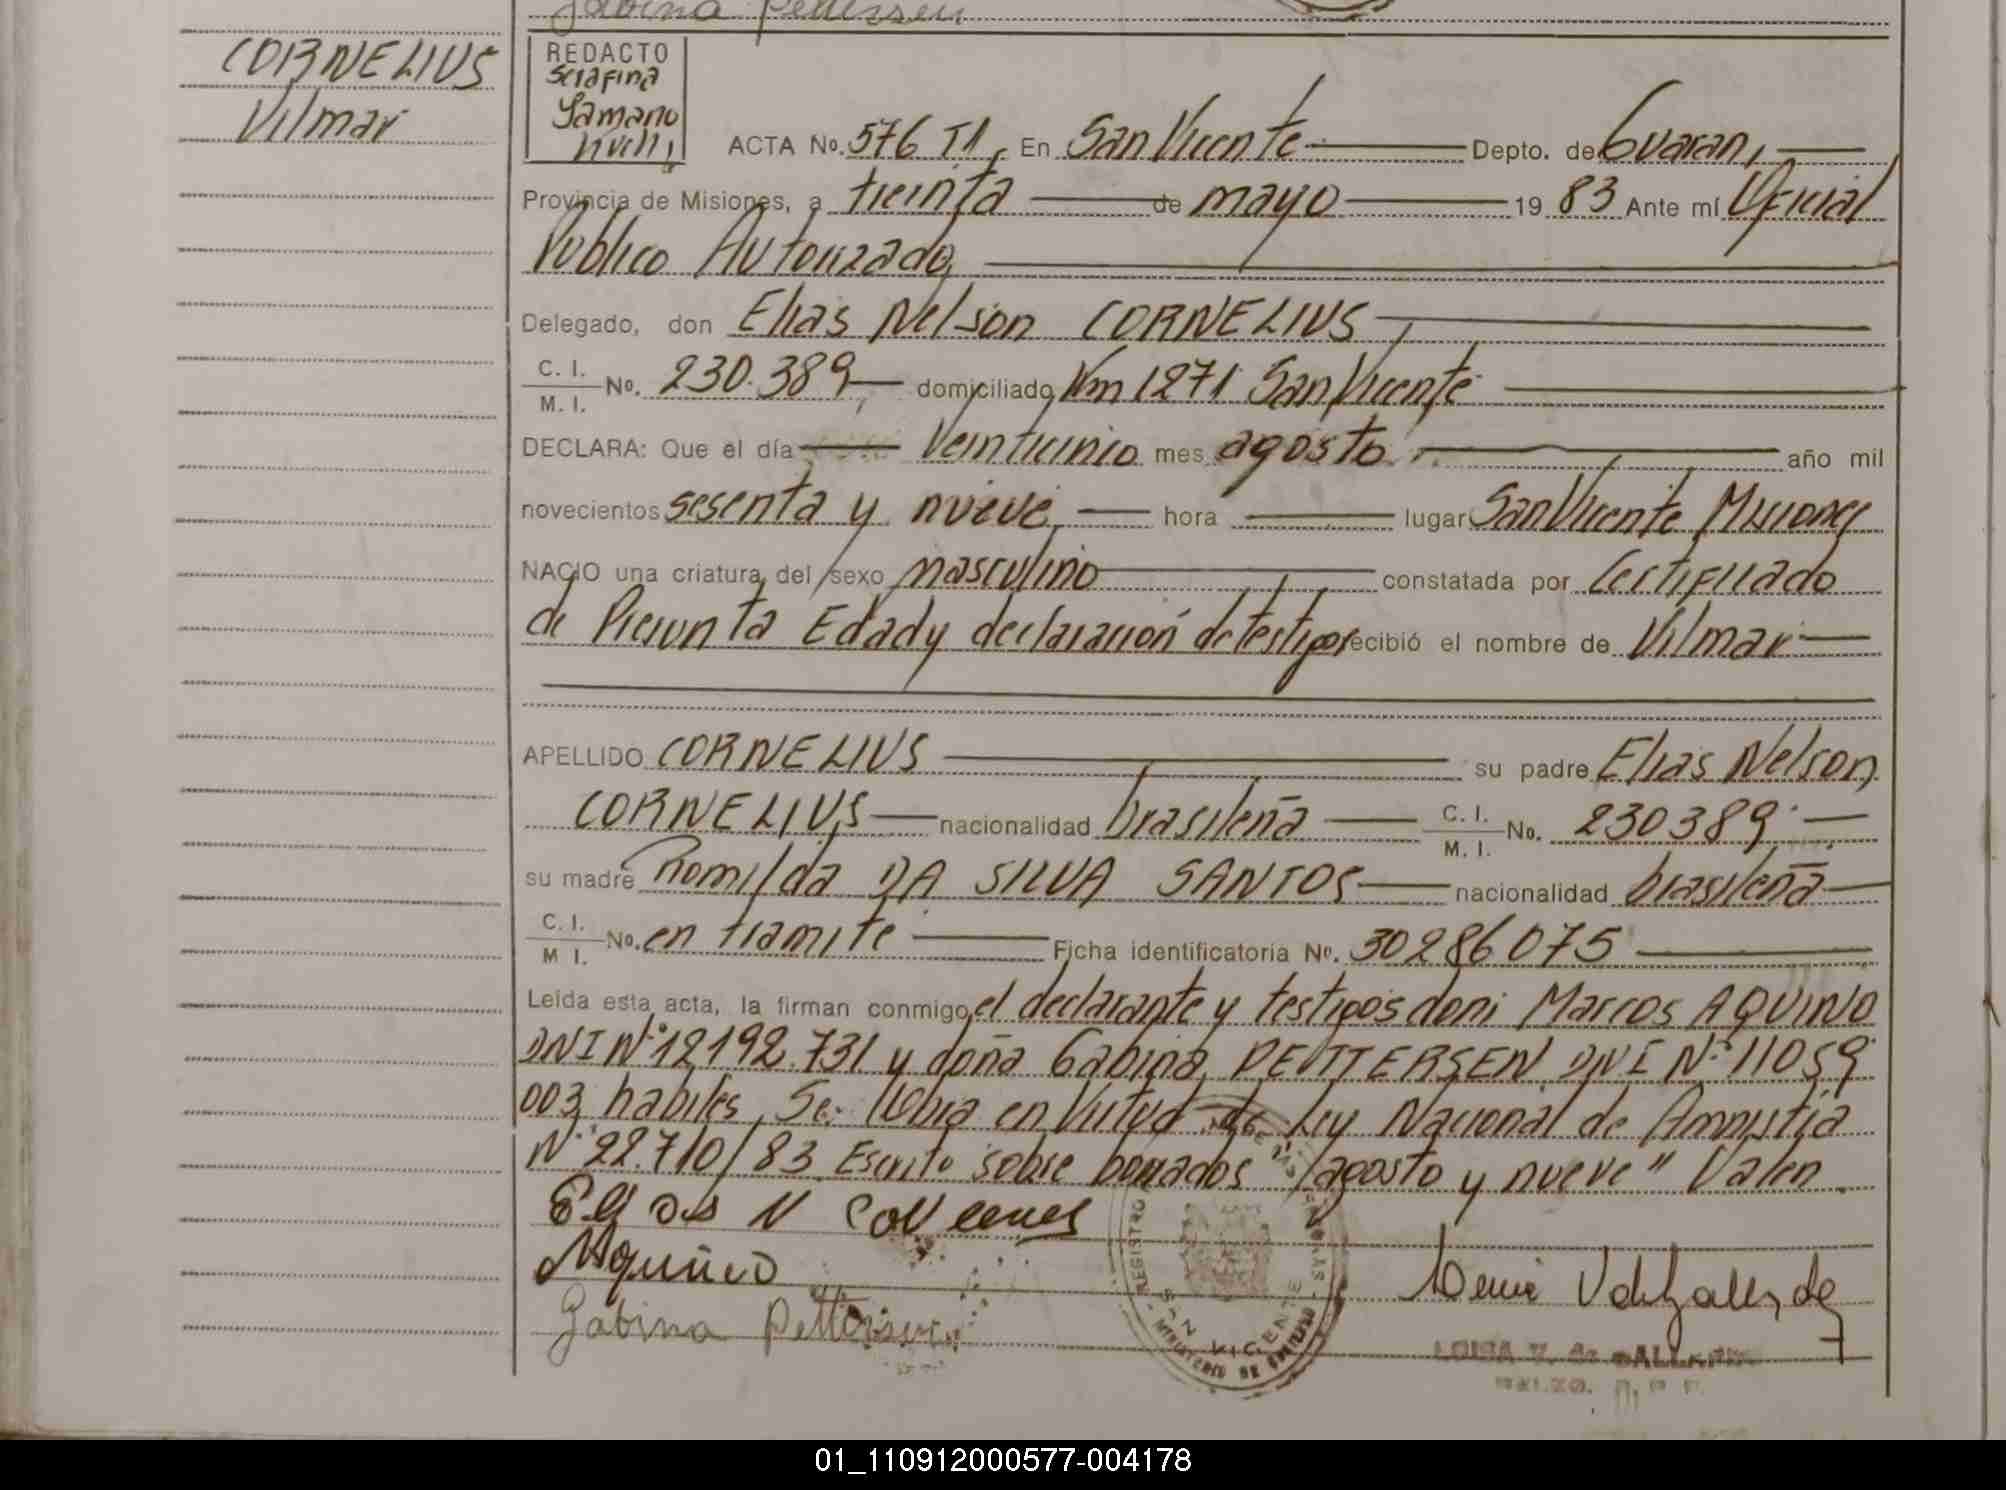 Gabina Pettersen
CORNELIUS
Vilmar
REDACTO
Serafina
Samano
ACTA No. 576 T1, En San Vicente Depto. de Guarani,
Provincia de Misiones, a treinta de mayo 19 83 Ante mí Oficial
Publico Autorizado,
Delegado, don Elias Nelson CORNELIUS,
C. I.
M. I. No. 230.389, domiciliado Km 1271 San Vicente
DECLARA: Que el día Veinticinco mes agosto año mil
novecientos sesenta y nueve, hora lugar San Vicente Misiones
NACIO una criatura del sexo masculino constatada por Certificado
de Presunta Edad y declaración de testigos recibió el nombre de Vilmar
APELLIDO CORNELIUS su padre Elias Nelson
CORNELIUS nacionalidad brasileña C. I.
M. I. No. 230389
su madre Romilda DA SILVA SANTOS nacionalidad brasileña
C. I.
M I. No. en tramite Ficha identificatoria No. 30286075
Leída esta acta, la firman conmigo, el declarante y testigos don: Marcos AQUINO
DNI Nº 12192.731 y doña Gabina PETTERSEN DNI Nº 11059
003 habiles, Se labra en Virtud de Ley Nacional de Amnistía
Nº 22.710/83 Escrito sobre borrados "agosto y nueve" Valen
Aquino
Gabina Pettersen
REGISTRO
SAN VICENTE
MINISTERIO DE GOBIERNO
01_110912000577-004178